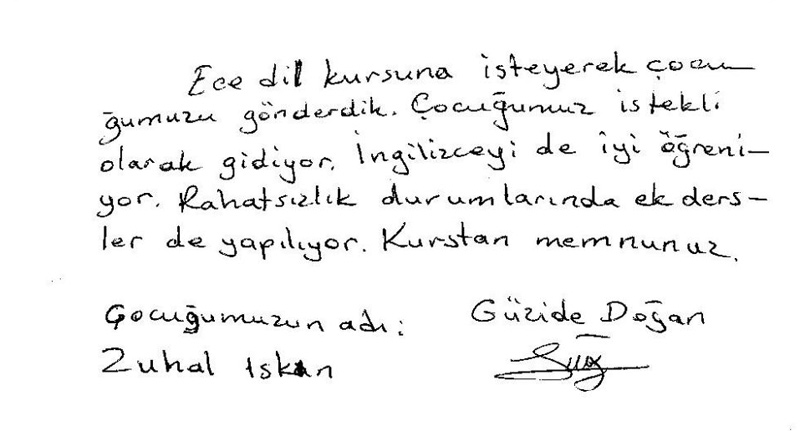 Ece dil kursuna isteyerek çocu—
ğumuzu gönderdik. Çocuğumuz istekli
olarak gidiyor. İngilizceyi de iyi öğreni—
yor. Rahatsızlık durumlarında ek ders—
ler de yapılıyor. Kurstan memnunuz.
Çocuğumuzun adı: Güzide Doğan
Zuhal